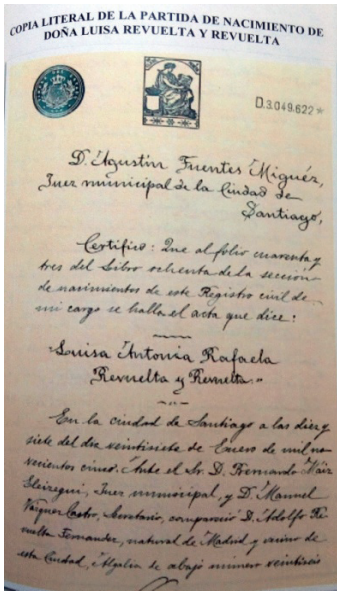 COPIA LITERAL DE LA PARTIDA DE NACIMIENTO DE
DOÑA LUISA REVUELTA Y REVUELTA
D.3.049.622*
D. Agustín Fuentes Miguéz,
Juez municipal de la Ciudad de
Santiago,
Certifico: Que al folio cuarenta y
tres del Libro ochenta de la sección
de nacimientos de este Registro civil de
mi cargo se halla el acta que dice:
"Luisa Antonia Rafaela
Revuelta y Revuelta."
En la ciudad de Santiago a las diez y
siete del día veintisiete de Enero de mil no-
vecientos cinco. Ante el Sr. D. Fernando Máiz
Eleizegui, Juez municipal, y D. Manuel
Vazquez Castro, Secretario, compareció D. Adolfo Re-
vuelta Fernandez, natural de Madrid y vecino de
esta Ciudad, Algalia de abajo número veintiseis